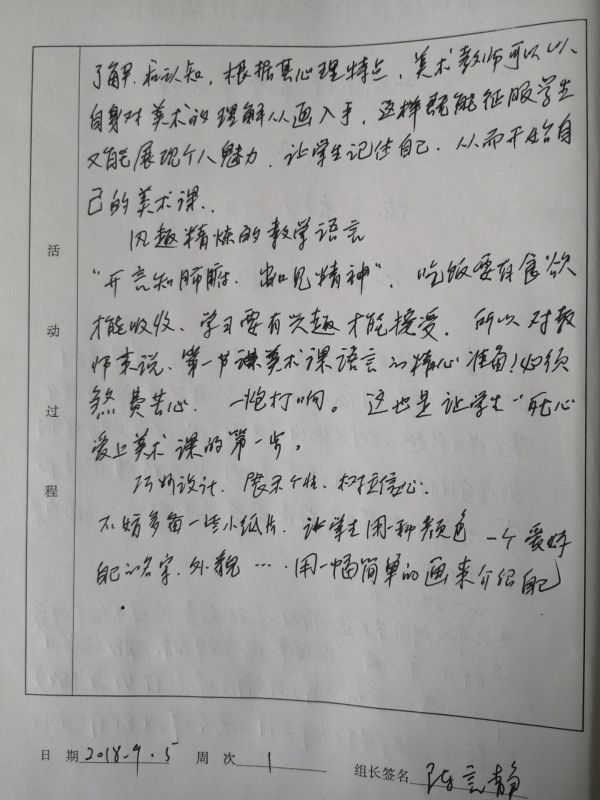 了解.和认知,根据其心理特点,美术教师可以从
自身对美术的理解从画入手,这样既能征服学生
又能展现个人魅力,让学生记住自己.从而开始自
己的美术课..
风趣精炼的教学语言
"开言知肺腑.出口见精神".吃饭要有食欲
才能收收.学习要有兴趣才能接受.所以对教
师来说,第一节课美术课语言的精心准备!必须
煞费苦心.一炮打响。这也是让学生一见心
爱上美术课的第一步。
巧妙设计.展示个性.树立信心.
不妨多备一些小纸片.让学生用一种颜色 一个爱好
自己的名字.外貌….用一幅简单的画来介绍自己
活
动
过
程
日 期 2018.9.5 周 次 1 组长签名